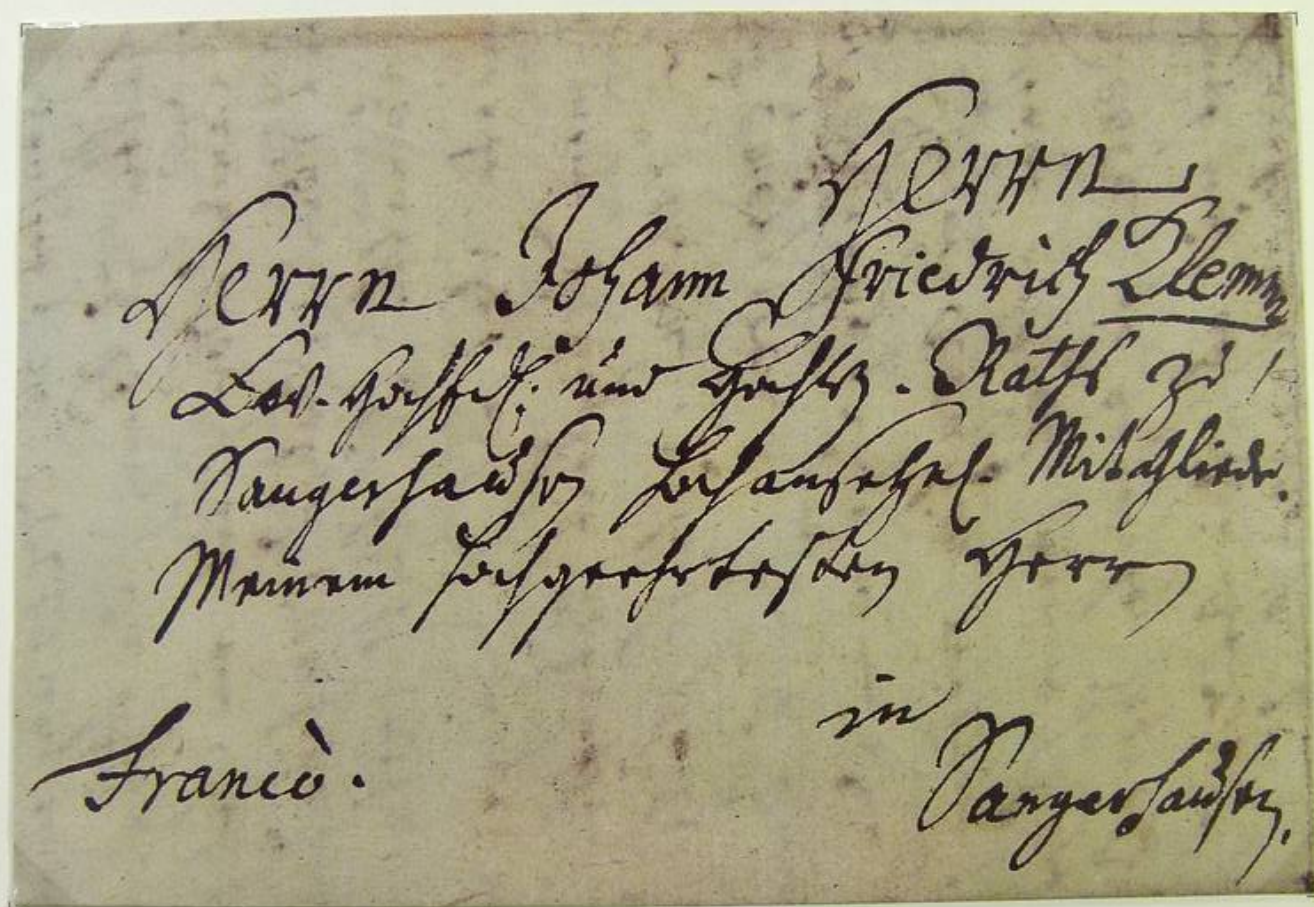 Herrn
Herrn Johann Friedrich Klemm
Hochedl. und Hochw. Raths zu
Sangerhausen Hochansehnl. Mitgliede.
Meinem Hochgeehrtesten Herrn
in
Francò. Sangerhausen.